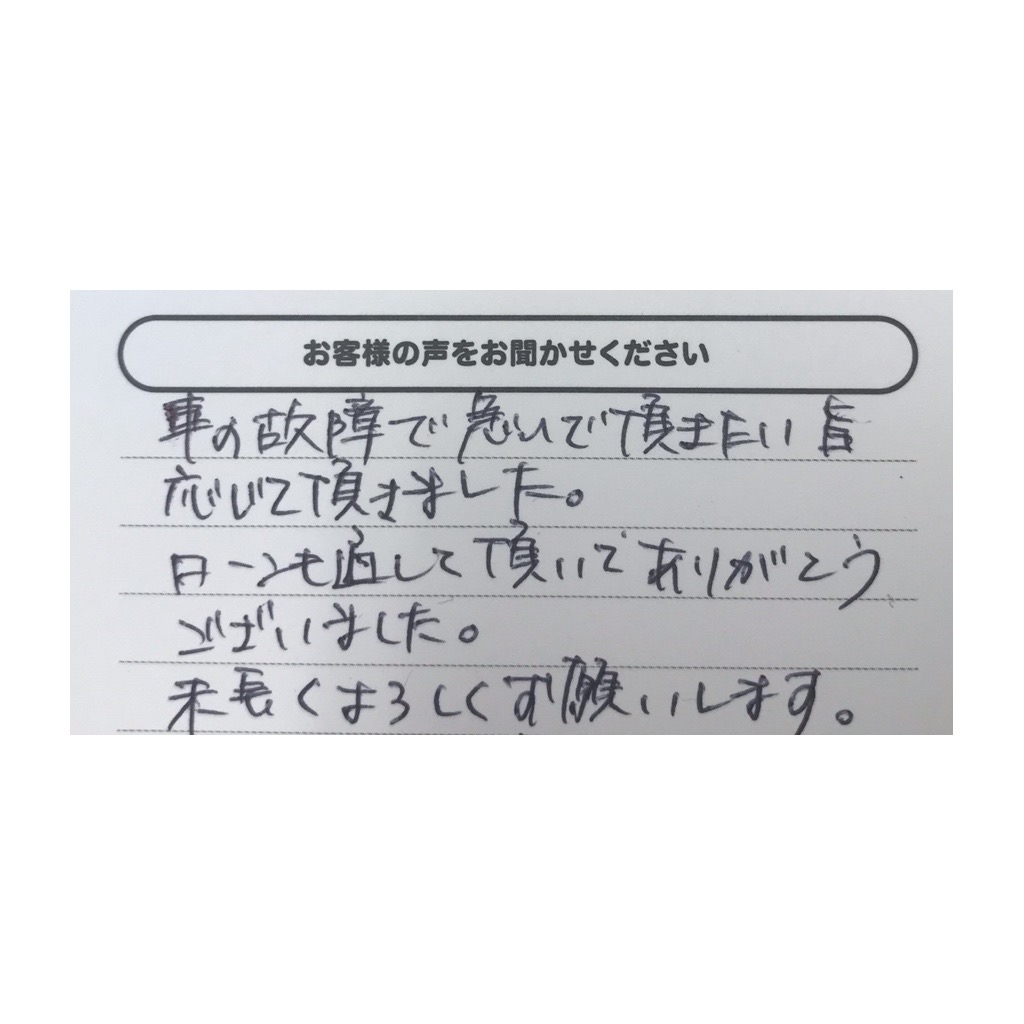 お客様の声をお聞かせください
車の故障で急いで頂きたい旨
応じて頂きました。
ローンも通して頂いてありがとう
ございました。
末長くよろしくお願いします。